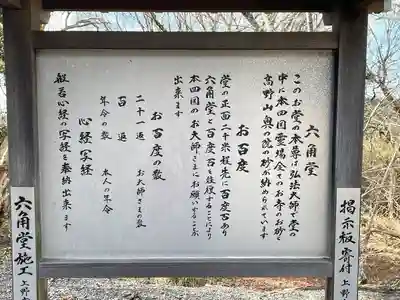 六角堂
このお堂の本尊は弘法大師で堂の
中に本四国霊場全てのお寺のお砂と
高野山奥の院の砂が納められています
お百度
堂の正面二十米程先に百度石あり
六角堂と百度石を往復することにより
本四国のお大師さまにお願いすることが
出来ます
お百度の数
二十一遍 お大師さまの数
百遍
年令の数 本人の年令
心経写経
般若心経の写経を奉納出来ます
掲示板寄付 上野
六角堂施工 上野